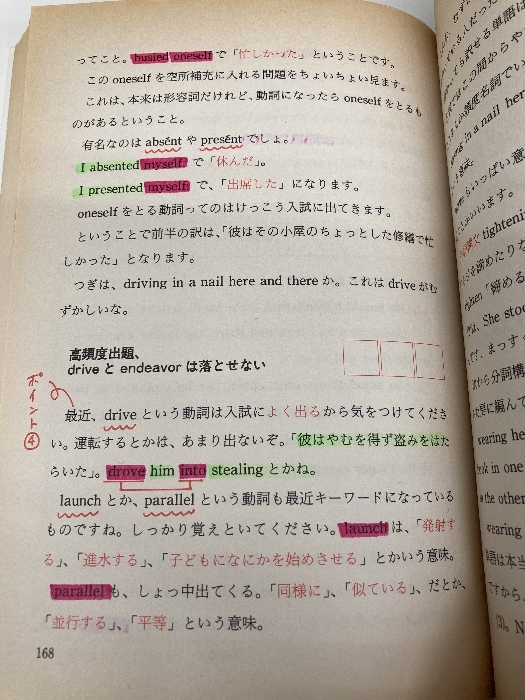 ってこと。busied oneself で「忙しかった」ということです。
この oneself を空所補充に入れる問題をちょいちょい見ます。
これは、本来は形容詞だけれど、動詞になったら oneself をとるも
のがあるということ。
有名なのは absént や presént でしょ。
I absented myself. で「休んだ」。
I presented myself. で、「出席した」になります。
oneself をとる動詞ってのはけっこう入試に出てきます。
ということで前半の訳は、「彼はその小屋のちょっとした修繕で忙
しかった」となります。
つぎは、driving in a nail here and there か。これは drive がむ
ずかしいな。
高頻度出題、
drive と endeavor は落とせない
ポイント④
最近、drive という動詞は入試によく出るから気をつけてくださ
い。運転するとかは、あまり出ないぞ。「彼はやむを得ず盗みをはた
らいた」。drove him into stealing とかね。
launch とか、parallel という動詞も最近キーワードになっている
ものですね。しっかり覚えといてください。launch は、「発射す
る」、「進水する」、「子どもになにかを始めさせる」とかいう意味。
parallel も、しょっ中出てくる。「同様に」、「似ている」、だとか、
「並行する」、「平等」という意味。
168
in a nail here
tightening
を締めたりな
「締める
She stood
から分詞構
wearing he
in one
the other
wearing
ですから、